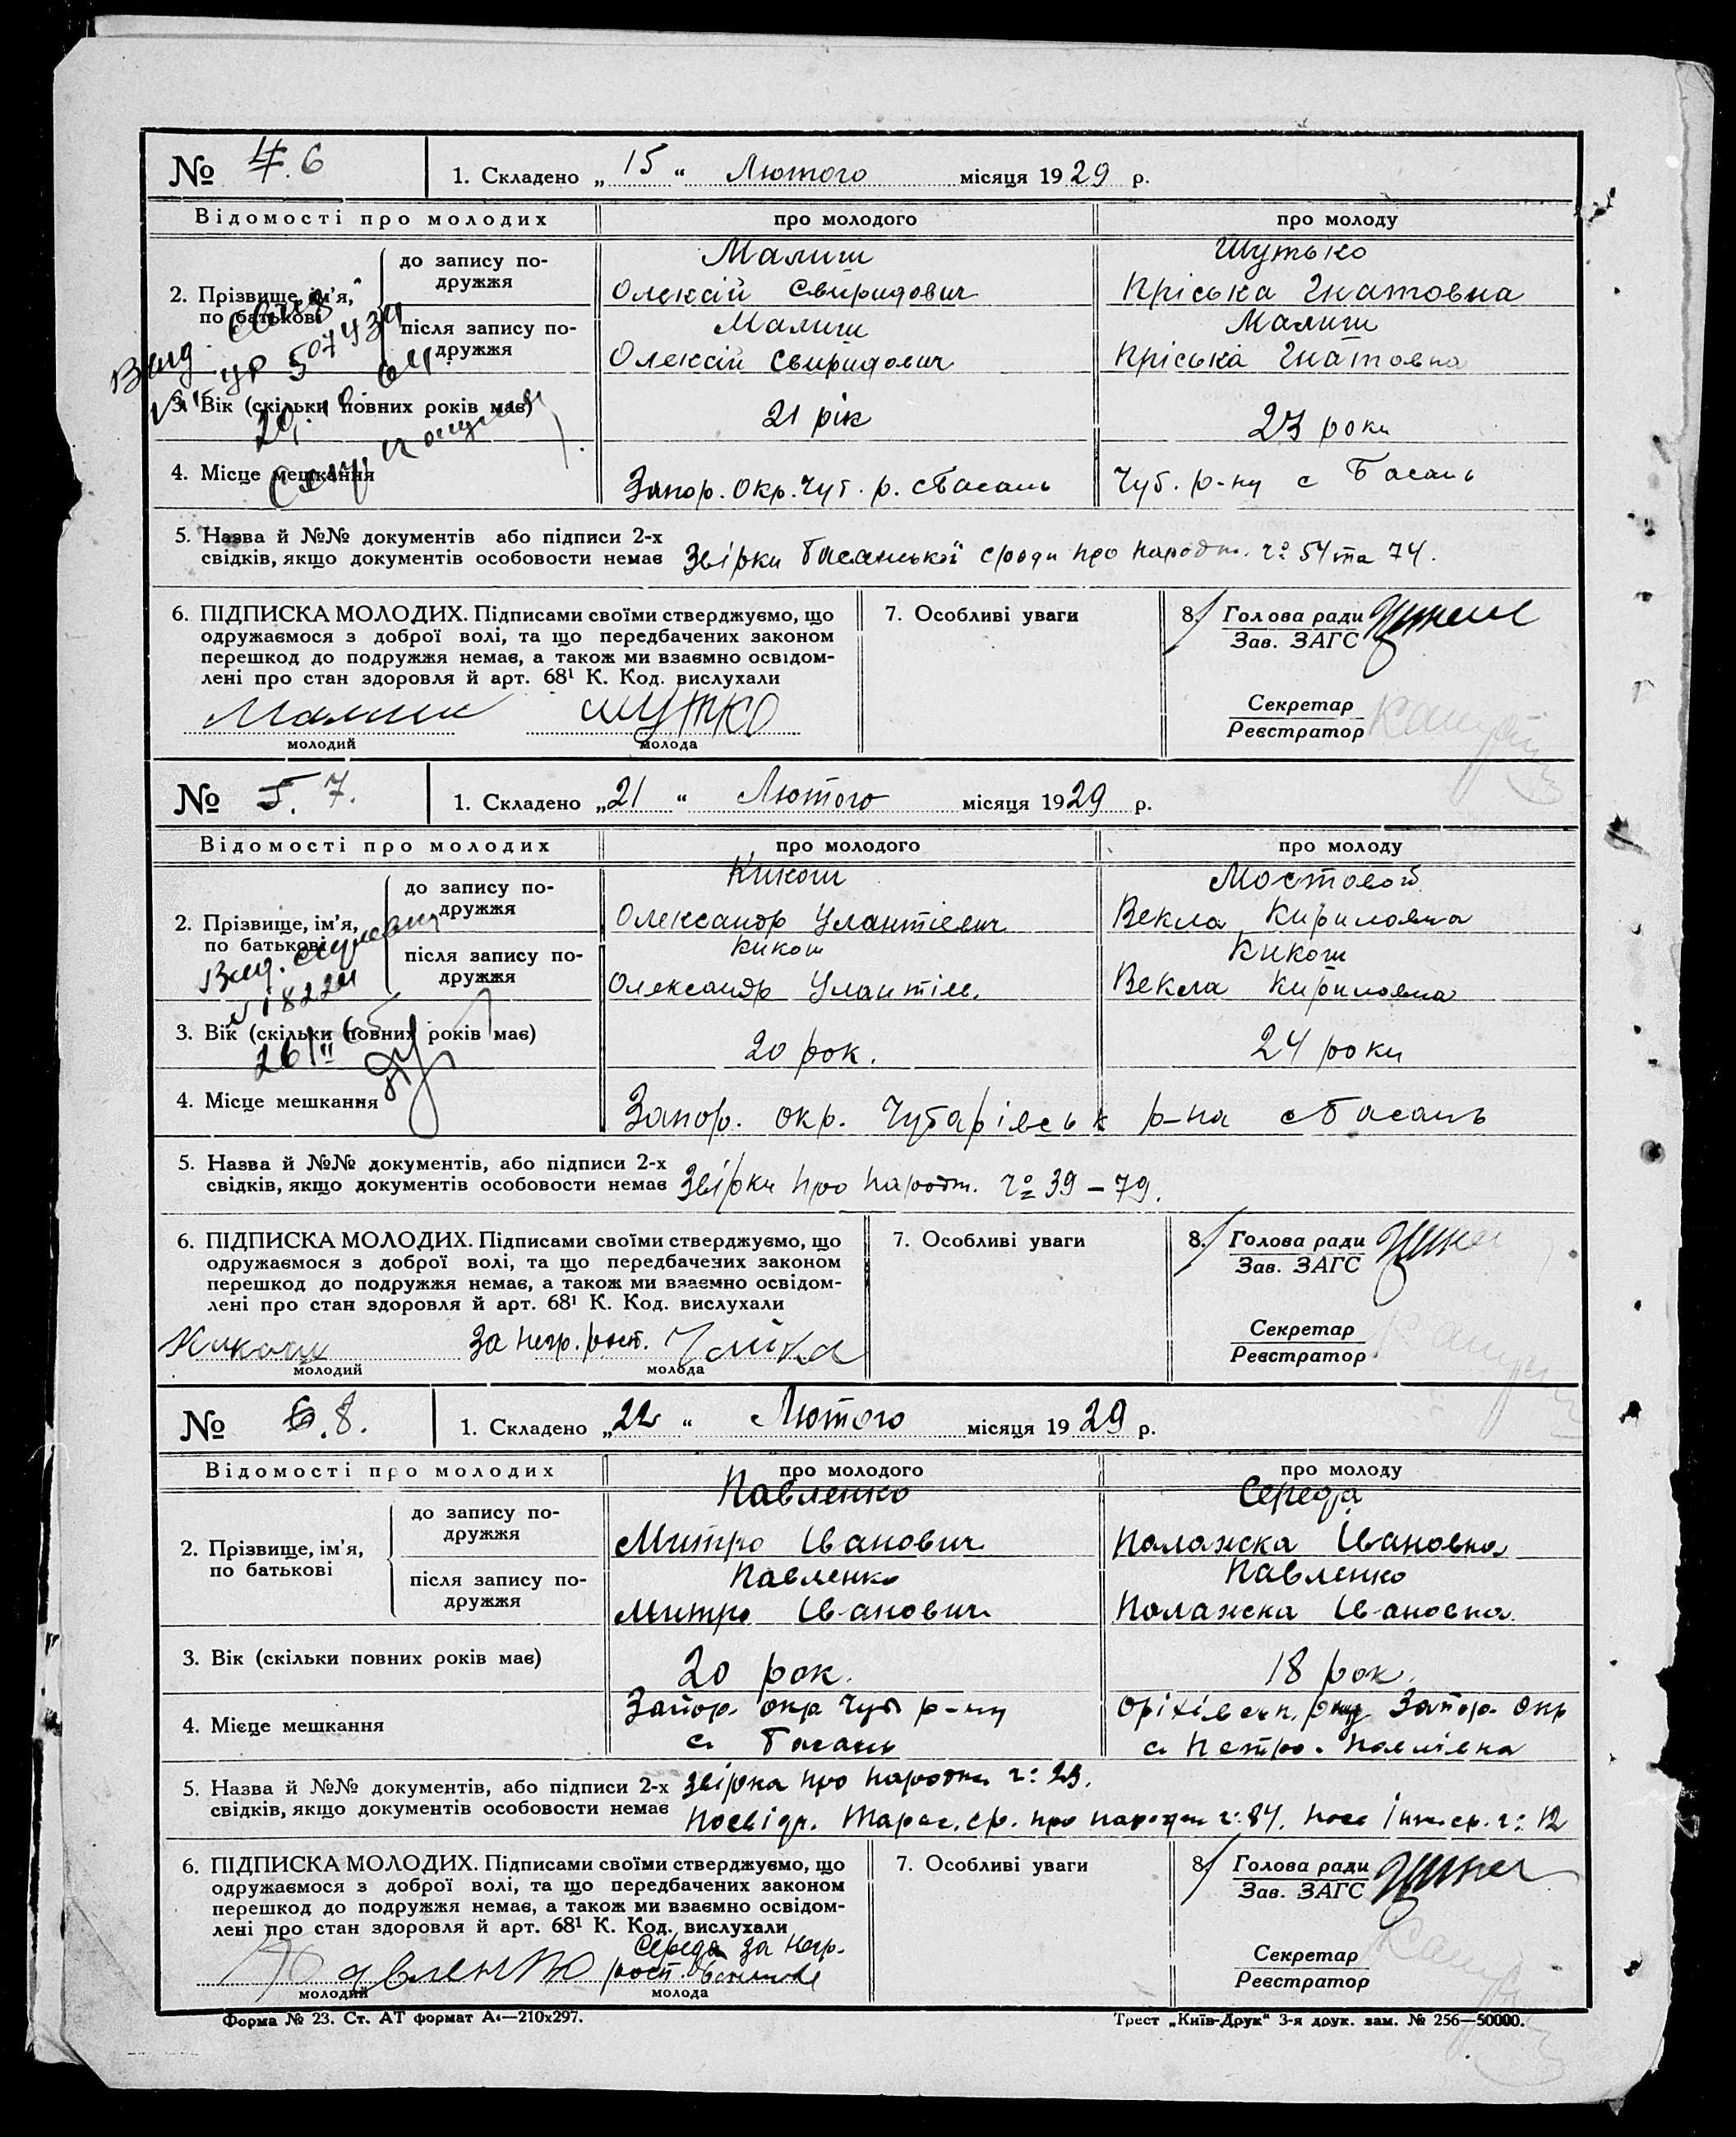 № 4. 6
1. Складено „ 15 “ Лютого місяця 1929 р.
Відомості про молодих про молодого про молоду
2. Прізвище, ім’я, по батькові
до запису по-
дружжя
Малиш
Олексій Свиридович
Шутько
Пріська Гнатовна
після запису по-
дружжя
Малиш
Олексій Свиридович
Малиш
Пріська Гнатовна
3. Вік (скільки повних років має) 21 рік 23 роки
4. Місце мешкання Запор. Окр. Чуб. р. с Басань Чуб. р-ну с Басань
5. Назва й №№ документів або підписи 2-х
свідків, якщо документів особовости немає Звірки Басанської с/ради про народж. ч° 54 та 74.
6. ПІДПИСКА МОЛОДИХ. Підписами своїми стверджуємо, що
одружаємося з доброї волі, та що передбачених законом
перешкод до подружжя немає, а також ми взаємно освідом-
лені про стан здоровля й арт. 68¹ К. Код. вислухали
Малиш Шутко
молодий молода
7. Особливі уваги
8. Голова ради
Зав. ЗАГС
Секретар
Реєстратор
№ 5. 7.
1. Складено „21“ Лютого місяця 1929 р.
Відомості про молодих про молодого про молоду
2. Прізвище, ім’я,
по батькові
до запису по-
дружжя
Кикош
Олександр Улантієвич
Мостовой
Векла Кириловна
після запису по-
дружжя
Кикош
Олександр Улантіє.
Кикош
Векла Кириловна
3. Вік (скільки повних років має) 20 рок. 24 роки
4. Місце мешкання Запор. окр. Чубарівськ р-на с Басань
5. Назва й №№ документів, або підписи 2-х
свідків, якщо документів особовости немає Звірки про народж. ч° 39 – 79.
6. ПІДПИСКА МОЛОДИХ. Підписами своїми стверджуємо, що
одружаємося з доброї волі, та що передбачених законом
перешкод до подружжя немає, а також ми взаємно освідом-
лені про стан здоровля й арт. 68¹ К. Код. вислухали
Кикош За негр. рост.
молодий молода
7. Особливі уваги
8. Голова ради
Зав. ЗАГС
Секретар
Реєстратор
№ 6. 8.
1. Складено „22“ Лютого місяця 1929 р.
Відомості про молодих про молодого про молоду
2. Прізвище, ім’я,
по батькові
до запису по-
дружжя
Павленко
Митро Іванович
Середа
Палажска Івановна
після запису по-
дружжя
Павленко
Митро Іванович
Павленко
Палажска Івановна.
3. Вік (скільки повних років має) 20 рок. 18 рок.
4. Місце мешкання
Запор. окр Чуб р-ну
с. Басань
Оріхівськ. Запор. Окр
с. Петро-Павлівка
5. Назва й №№ документів, або підписи 2-х
свідків, якщо документів особовости немає
Звірка про народж. ч: 23.
Посвідч. Тарас. с/р. про народж ч: 84. ч: 12
6. ПІДПИСКА МОЛОДИХ. Підписами своїми стверджуємо, що
одружаємося з доброї волі, та що передбачених законом
перешкод до подружжя немає, а також ми взаємно освідом-
лені про стан здоровля й арт. 68¹ К. Код. вислухали
Павленко Середа за негр. рост.
молодий молода
7. Особливі уваги
8. Голова ради
Зав. ЗАГС
Секретар
Реєстратор
Форма № 23. Ст. АТ формат А₄—210х297.
Трест „Київ-Друк“ 3-я друк. зам. № 256—50000.